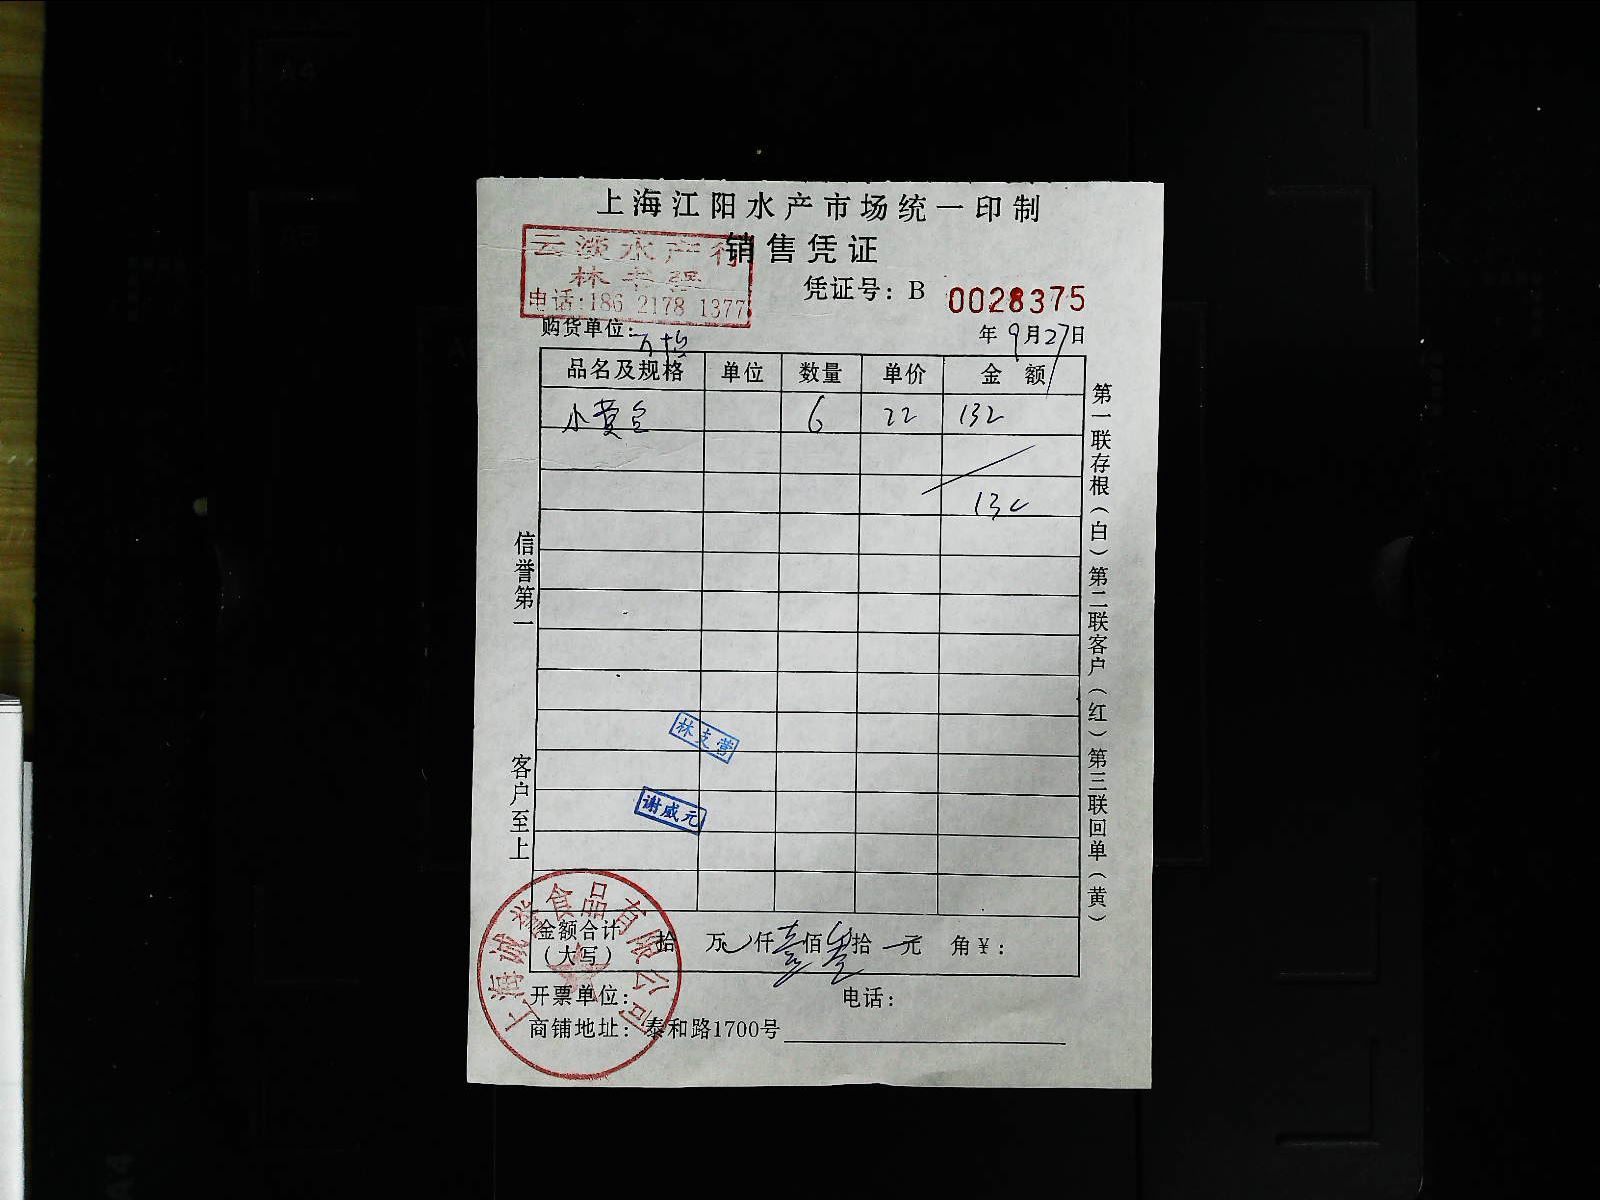 上海江阳水产市场统一印制
销售凭证
云淡水产行
林书强
电话:186 2178 1377
凭证号: B 0028375
购货单位:
年9月27日
品名及规格 单位 数量 单价 金额
小黄鱼 6 22 132
132
信誉第一
客户至上
第一联存根(白)第二联客户(红)第三联回单(黄)
林支营
谢威元
上海诚誉食品有限公司
金额合计(大写) 拾 万 仟壹佰叁拾 元 角 ¥:
开票单位: 电话:
商铺地址: 泰和路1700号